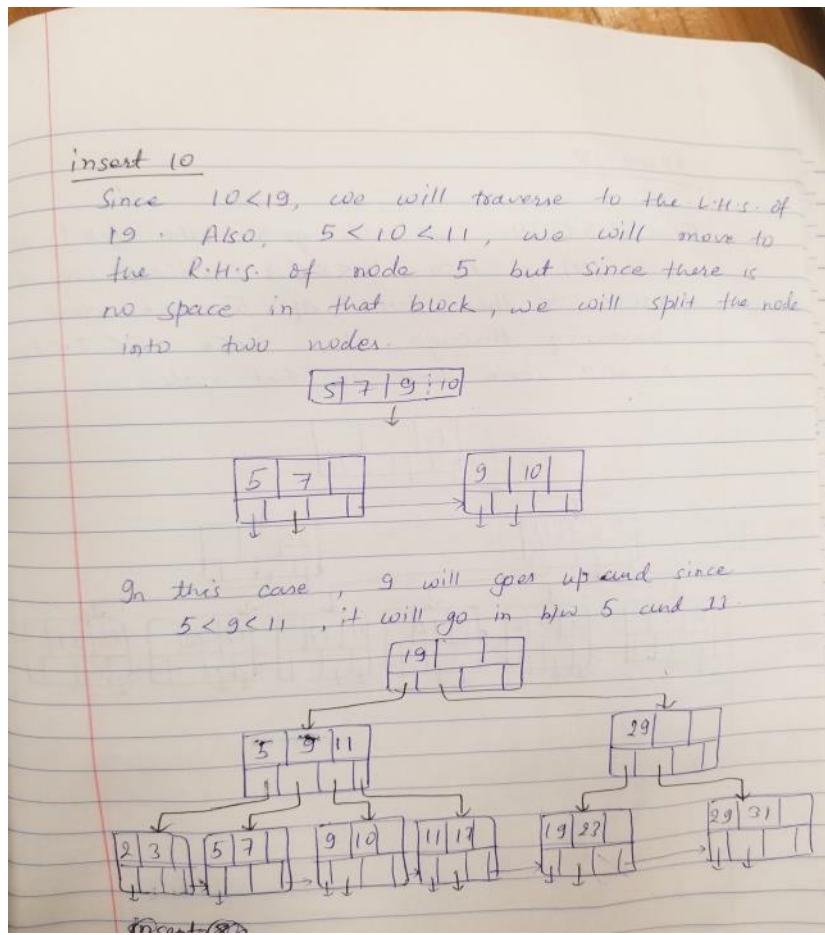 insert 10
Since 10<19, we will traverse to the L.H.S. of
19. Also, 5<10<11, we will move to
the R.H.S. of node 5 but since there is
no space in that block, we will split the node
into two nodes.
5 7 9 10
5 7 9 10
In this case, 9 will goes up and since
5<9<11, it will go in b/w 5 and 11.
19
5 9 11 29
2 3 5 7 9 10 11 17 19 23 29 31